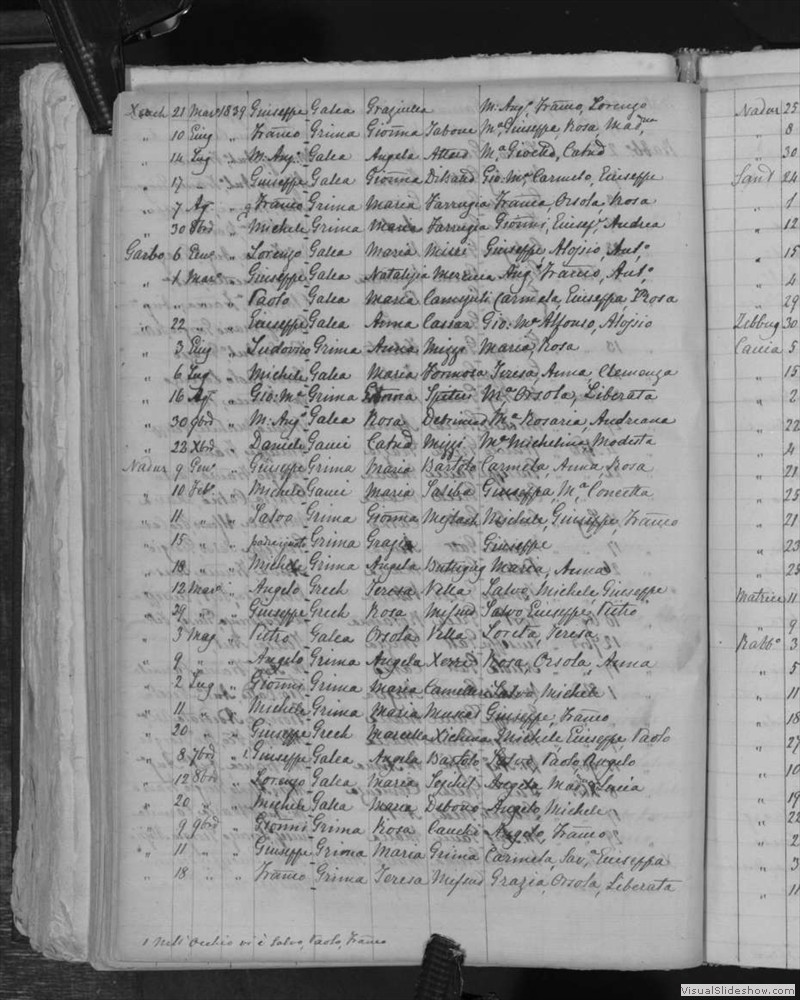 Xeuch 21 Mar 1839 Giuseppe Galea Graziella M. Ang.o Franco, Lorenzo
" 10 Giug " Franco Grima Gionna Tabone M.a Giuseppa, Rosa
" 14 Lug " M. Ang.o Galea Angela Attard M.a
" 17 " " Giuseppe Galea Gionna Gio. M.a Carmelo, Giuseppe
" 7 Ag " Franco Grima Maria Farrugia Franca, Orsola, Rosa
" 30 8bre " Michele Grima Maria Farrugia Gionni, Andrea
Garbo 6 " Lorenzo Galea Maria Giuseppe, Aloysio, Ant.o
" 1 Mar.o " Giuseppe Galea Natalizia Ang.o Franco, Ant.o
" " " Paolo Galea Maria Camijuli Carmela, Giuseppa, Rosa
" 22 " " Giuseppe Galea Anna Cassar Gio. M.a Alfonso, Aloysio
" 3 Giug " Ludovico Grima Anna Mizzi Maria, Rosa
" 6 Lug " Michele Galea Maria Formosa Teresa, Anna, Clemenza
" 16 Ag " Gio: M.a Grima Gionna Spiteri M.a Orsola, Liberata
" 30 9bre " M. Ang.o Galea Rosa M.a Rosaria, Andreana
" 23 Xbre " Daniele Gauci Mizzi M.a Michelina, Modesta
Nadur 9 Gen.o " Giuseppe Grima Maria Bartolo Carmela, Anna, Rosa
" 10 Feb.o " Michele Gauci Maria Saliba Giuseppa, M.a Concetta
" 11 " " Salvo Grima Gionna Mejlach Michele, Giuseppe, Franco
" 15 " " Grima Grazia " Giuseppe
" 18 " " Michele Grima Angela Buttigieg Maria, Anna
" 12 Mar.o " Angelo Grech Teresa Vella Salvo, Michele, Giuseppe
" 29 " " Giuseppe Grech Rosa Mifsud Salvo, Giuseppe, Pietro
" 3 Mag " Pietro Galea Orsola Vella Loreta, Teresa
" 9 " " Angelo Grima Angela Xerri Rosa, Orsola, Anna
" 2 Lug " Gionni Grima Maria Camilleri Salvo, Michele
" 11 " " Michele Grima Maria Muscat Giuseppe, Franco
" 20 " " Giuseppe Grech Marcella Michele, Giuseppe, Paolo
" 8 7bre 1 Giuseppe Galea Angela Bartolo Salvo, Paolo, Angelo
" 12 8bre " Lorenzo Galea Maria Angela, Lucia
" 20 " " Michele Galea Maria Debono Angelo, Michele
" 9 9bre " Gionni Grima Rosa Cauchi Angelo, Franco
" 11 " " Giuseppe Grima Maria Grima Carmela, Sav.a Giuseppa
" 18 " " Franco Grima Teresa Mifsud Grazia, Orsola, Liberata
1 Nell' occhio vi è Salvo, Paolo, Franco
Nadur 25
" 8
" 30
Sand 24
" 1
" 12
" 15
" 4
" 29
Zebbug 30
Caccia 5
" 15
" 2
" 22
" 4
" 21
" 25
" 21
" 23
" 25
Matrice 11
" 9
Rabb.o 3
" 5
" 11
" 18
" 27
" 10
" 19
" 22
" 2
" 3
" 11
VisualSlideshow.com